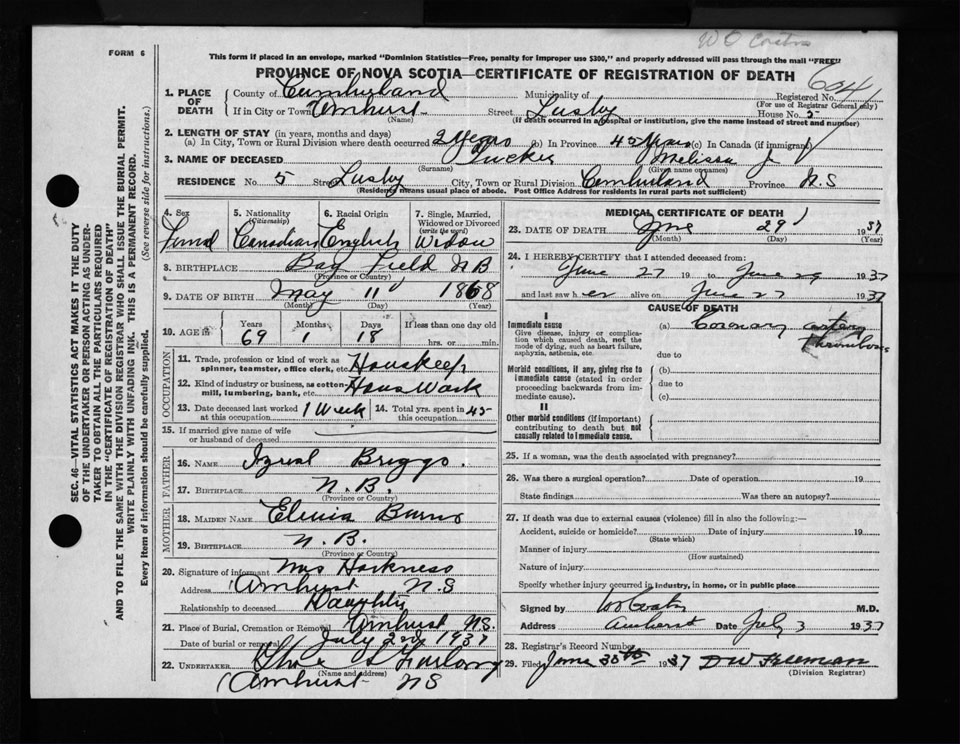 W O Coates
FORM 6
This form if placed in an envelope, marked "Dominion Statistics—Free, penalty for improper use $300," and properly addressed will pass through the mail "FREE"
PROVINCE OF NOVA SCOTIA—CERTIFICATE OF REGISTRATION OF DEATH
1. PLACE OF DEATH { County of Cumberland Municipality of Registered No. 604
(For use of Registrar General only)
If in City or Town Amherst Street Lusby House No. 5
(Name) (If death occurred in a hospital or institution, give the name instead of street and number)
2. LENGTH OF STAY (in years, months and days)
(a) In City, Town or Rural Division where death occurred 2 Years (b) In Province 45 Years (c) In Canada (if immigrant)
3. NAME OF DECEASED Tucker Melissa J
(Surname) (Given name or names)
RESIDENCE No. 5 Street Lusby City, Town or Rural Division Cumberland Province N.S
(Residency means usual place of abode. Post Office Address for residents in rural parts not sufficient)
4. Sex 5. Nationality (Citizenship) 6. Racial Origin 7. Single, Married, Widowed or Divorced (write the word)
Femal Canadian English Widow
8. BIRTHPLACE Bay Field N B
(Province or Country)
9. DATE OF BIRTH May 11 1868
(Month) (Day) (Year)
10. AGE is Years Months Days If less than one day old
69 1 18 hrs. or min.
OCCUPATION
11. Trade, profession or kind of work as spinner, teamster, office clerk, etc. Houskeep
12. Kind of industry or business, as cotton-mill, lumbering, bank, etc. Hous Wark
13. Date deceased last worked at this occupation 1 Week 14. Total yrs. spent in this occupation 45
15. If married give name of wife or husband of deceased
FATHER
16. NAME Izreal Briggs.
17. BIRTHPLACE N.B.
(Province or Country)
MOTHER
18. MAIDEN NAME Burns
19. BIRTHPLACE N.B.
(Province or Country)
20. Signature of informant Mrs Harkness
Address Amherst N.S
Relationship to deceased Daughter
21. Place of Burial, Cremation or Removal Amherst N.S.
Date of burial or removal July 2nd 1937
22. UNDERTAKER Furlong
(Name and address)
Amherst N S
MEDICAL CERTIFICATE OF DEATH
23. DATE OF DEATH June 29 1937
(Month) (Day) (Year)
24. I HEREBY CERTIFY that I attended deceased from:
June 27 19 to June 29 1937
and last saw h er alive on June 27 1937
CAUSE OF DEATH
I
Immediate cause (a) Coronary artery Thrombosis
Give disease, injury or complication which caused death, not the mode of dying, such as heart failure, asphyxia, asthenia, etc.
due to
Morbid conditions, if any, giving rise to immediate cause (stated in order proceeding backwards from immediate cause). (b)
due to
(c)
II
Other morbid conditions (if important) contributing to death but not causally related to immediate cause.
25. If a woman, was the death associated with pregnancy?
26. Was there a surgical operation? Date of operation 19
State findings Was there an autopsy?
27. If death was due to external causes (violence) fill in also the following:—
Accident, suicide or homicide? Date of injury 19
(State which)
Manner of injury
(How sustained)
Nature of injury
Specify whether injury occurred in industry, in home, or in public place
Signed by W O Coates M.D.
Address Amherst Date July 3 1937
28. Registrar's Record Number
29. Filed June 30th 1937 D W Freeman
(Division Registrar)
SEC. 46—VITAL STATISTICS ACT MAKES IT THE DUTY
OF THE UNDERTAKER OR PERSON ACTING AS UNDER-
TAKER TO OBTAIN ALL THE PARTICULARS REQUIRED
IN THE "CERTIFICATE OF REGISTRATION OF DEATH"
AND TO FILE THE SAME WITH THE DIVISION REGISTRAR WHO SHALL ISSUE THE BURIAL PERMIT.
WRITE PLAINLY WITH UNFADING INK. THIS IS A PERMANENT RECORD.
Every item of information should be carefully supplied. (See reverse side for instructions.)